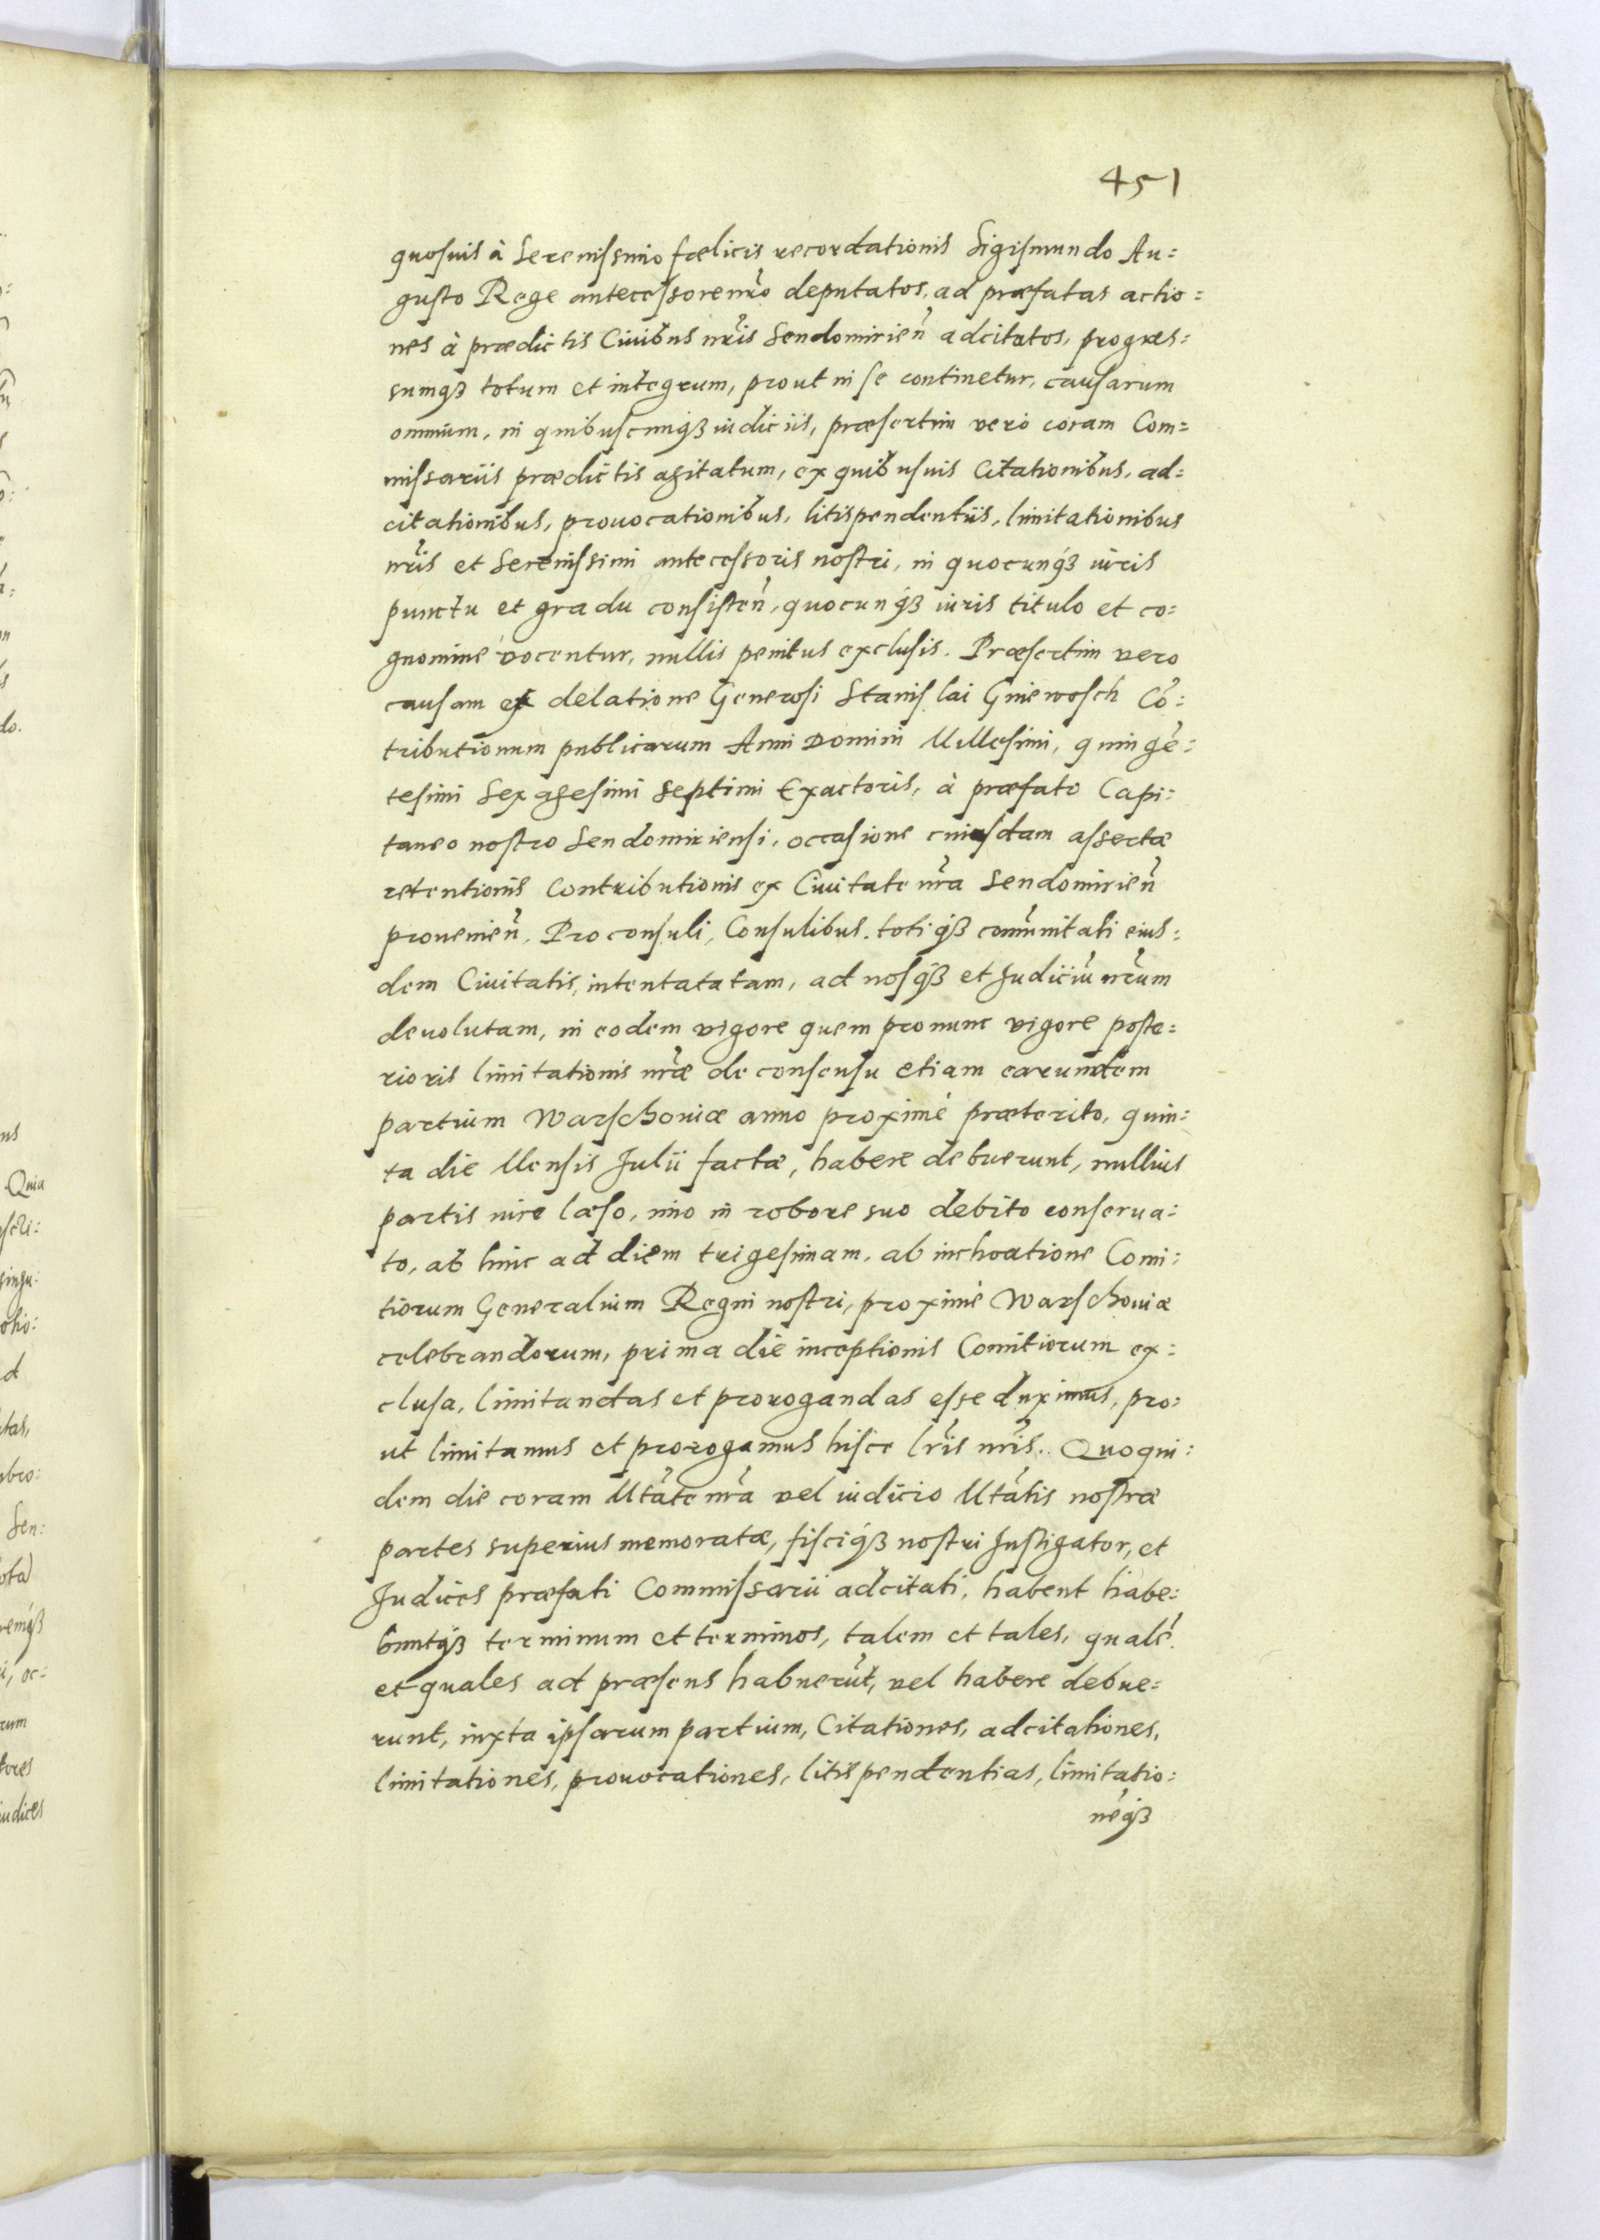 451
quosuis à Serenissimo fœlicis recordationis Sigismundo Au=
gusto Rege antecessore nr̃o deputatos, ad præfatas actio=
nes à prædictis Ciuibus nr̃is Sendomirien̄ adcitatos, progres=
sumq́ꝫ totum et integrum, prout in se continetur, causarum
omnium, in quibuscunq́ꝫ iudiciis, præsertim vero coram Com=
missariis prædictis agitatum, ex quibusuis Citationibus, ad=
citationibus, prouocationibus, litispendentiis, limitationibus
nr̃is et Serenissimi antecessoris nostri, in quocunq́ꝫ iuris
punctu et gradu consisten̄, quocunq́ꝫ iuris titulo et co=
gnomine vocentur, nullis penitus exclusis. Præsertim vero
causam ex delatione Generosi Stanislai Gniewosch Cō=
tributionum publicarum Anni Domini Millesimi, quingē=
tesimi Sexagesimi Septimi Exactoris, à præfato Capi=
taneo nostro Sendomiriensi, occasione cuiusdam assertæ
retentionis Contributionis ex Ciuitate nr̃a Sendomirien̄
prouenien̄, Proconsuli, Consulibus, totiq́ꝫ com̄unitati eius=
dem Ciuitatis, intentatatam, ad nosq́ꝫ et Judiciū nr̃um
deuolutam, in eodem vigore quem pro nunc vigore poste=
rioris limitationis nr̃æ de consensu etiam earundem
partium Warschouiæ anno proximè præterito, quin=
ta die Mensis Julii factæ, habere debuerunt, nullius
partis iure læso, imo in robore suo debito conserua=
to, ab hinc ad diem trigesimam, ab inchoatione Comi=
tiorum Generalium Regni nostri, proximè Warschouiæ
celebrandorum, prima die inceptionis Comitiorum ex=
clusa, limitandas et prorogandas esse duximus, pro=
ut limitamus et prorogamus hisce lr̃is nr̃is. Quoqui=
dem die coram Mtãte nr̃a vel iudicio Mtãtis nostræ
partes superius memoratæ, fisciq́ꝫ nostri Instigator, et
Judices præfati Commissarii adcitati, habent habe=
buntq́ꝫ terminum et terminos, talem et tales, qualē
et quales ad præsens habuerūt, vel habere debue=
runt, iuxta ipsarum partium, Citationes, adcitationes,
limitationes, prouocationes, litispendentias, limitatio=
nēq́ꝫ